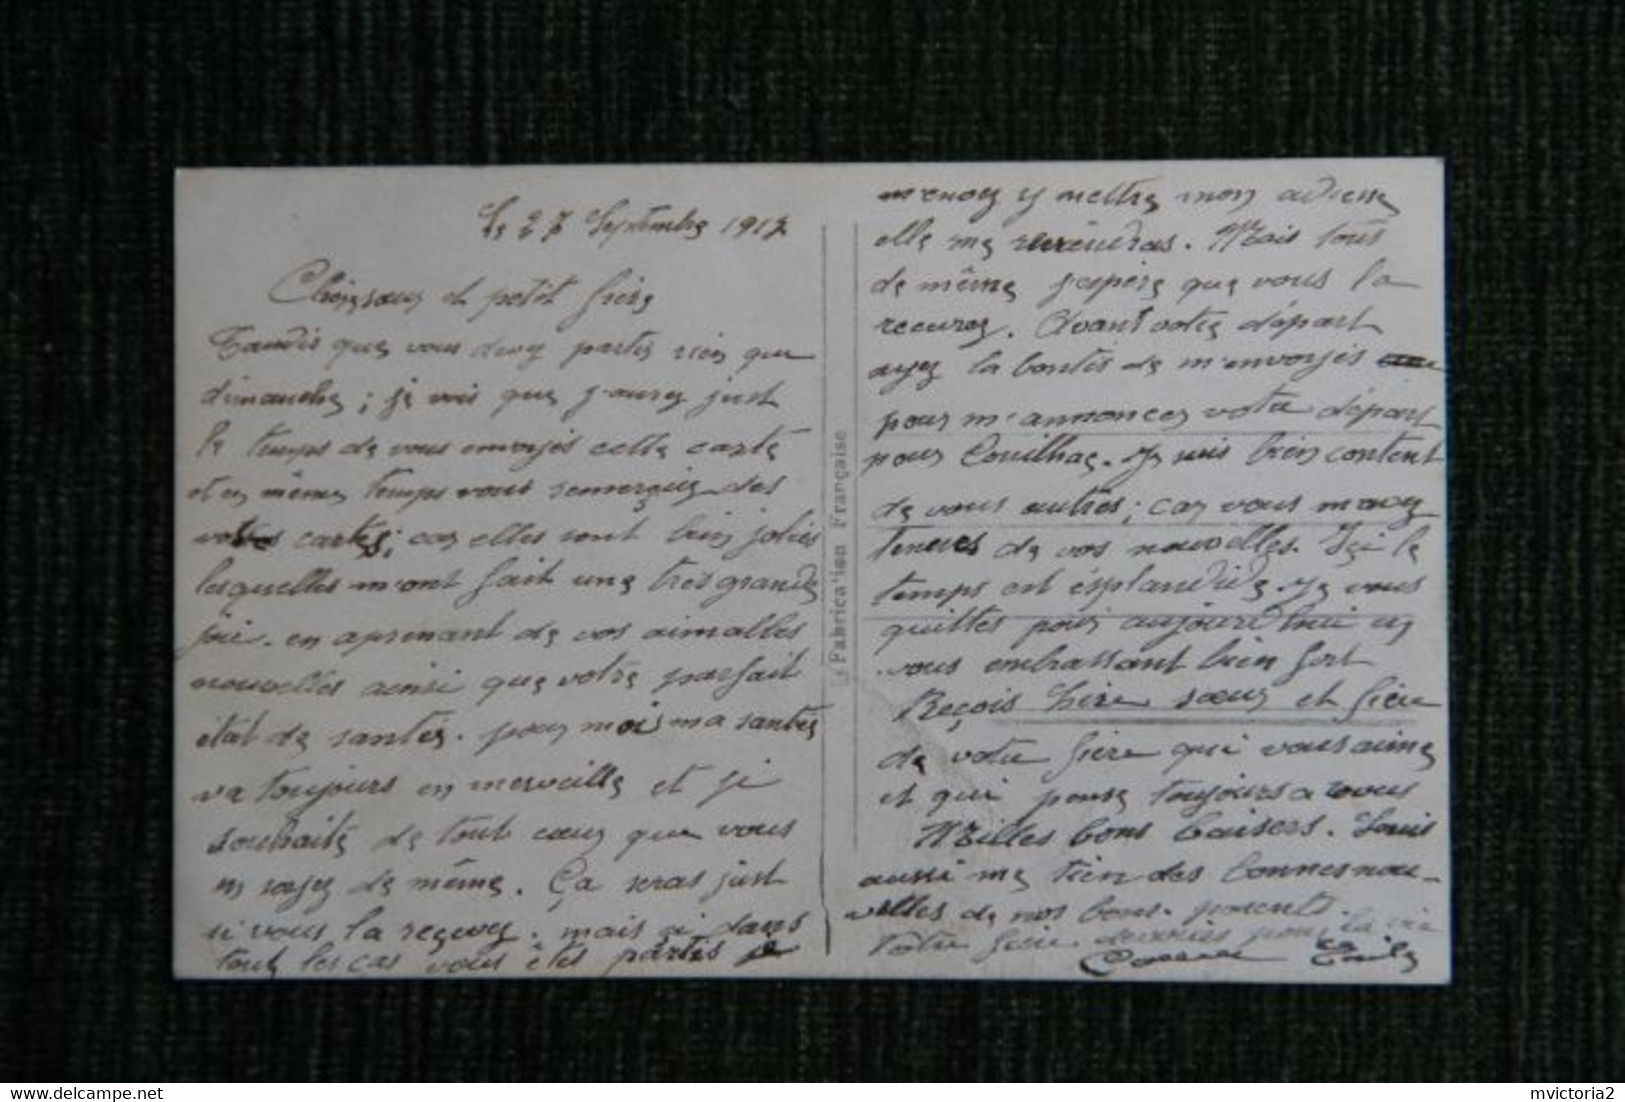 Le 27 Septembre 1917
Chère sœur et petit frère
Tandis que vous devez partir rien que
dimanche ; je vois que j'aurez just
le temps de vous envoyés cette carte
et en même temps vous remerciez des
votres cartes ; car elles sont bien jolies
lesquelles m'ont fait une très grande
joie. en aprenant de vos aimalles
nouvelles ainsi que votre parfait
état de santés. pour moi ma santés
va toujours en merveille et je
souhaite de tout cœur que vous
en soyez de même. Ça seras just
si vous la reçevez. mais si dans
tout les cas vous êtes partis je
m'enoez y mettre mon adresse
elle me reviendras. Mais tous
de même j'espère que vous la
recevrez. Avant votre départ
ayez la bontés de m'envoyés
pour m'annoncer votre départ
pour Couilhac. Je suis bien content
de vous autres ; car vous mavez
tenues de vos nouvelles. Içi le
temps est ésplandide. Je vous
quittes pour aujourdhui en
vous embrassant bien fort
Reçois chère sœur et frère
de votre frère qui vous aime
et qui pense toujours a vous
Milles bons baisers. Louis
aussi me tien des bonnes nou-
velles de nos bons parents.
Votre frère pour la vie
Emile
La Fabrication Française
mvictoria2